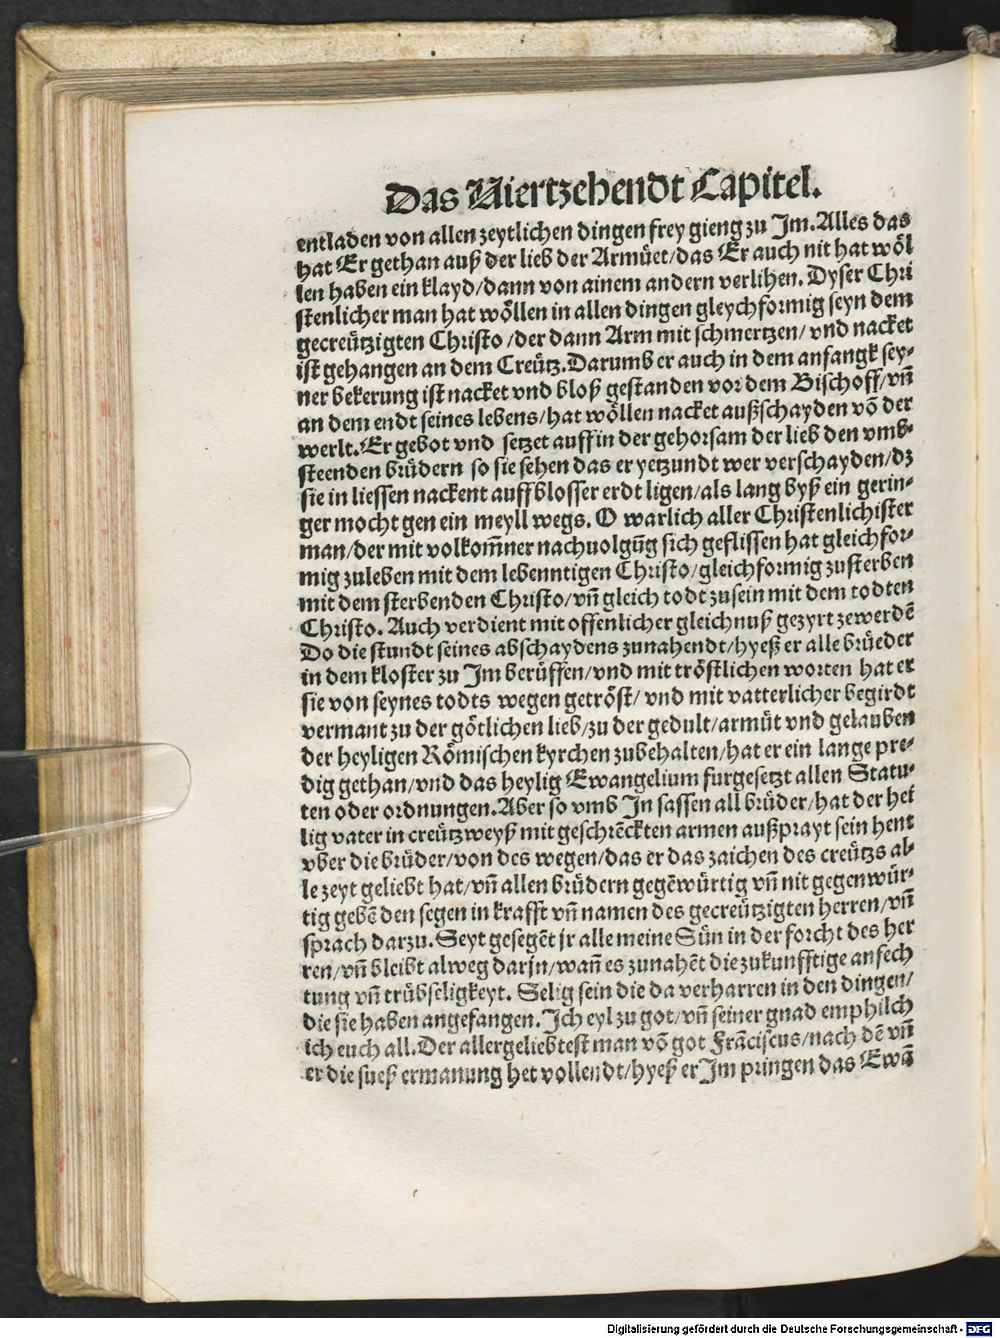 Das Viertzehendt Capitel.
entladen von allen zeytlichen dingen frey gieng zu Jm. Alles das
hat Er gethan auß der lieb der Armüet/das Er auch nit hat wöl
len haben ein klayd/dann von ainem andern verlihen. Dyser Chri
stenlicher man hat wöllen in allen dingen gleychformig seyn dem
gecreützigten Christo /der dann Arm mit schmertzen/ vnd nacket
ist gehangen an dem Creütz. Darumb er auch in dem anfangk sey⸗
ner bekerung ist nacket vnd bloß gestanden vor dem Bischoff/vñ
an dem endt seines lebens/hat wöllen nacket außschayden võ der
werlt. Er gebot vnd setzet auff in der gehorsam der lieb den vmb⸗
steenden brüdern so sie sehen das er yetzundt wer verschayden/dz
sie in liessen nackent auff blosser erdt ligen/als lang byß ein gerin⸗
ger mocht gen ein meyll wegs. O warlich aller Christenlichister
man/der mit volkom̃ner nachuolgũg sich geflissen hat gleichfor⸗
mig zuleben mit dem lebenntigen Christo/gleichformig zusterben
mit dem sterbenden Christo/vñ gleich todt zusein mit dem todten
Christo. Auch verdient mit offenlicher gleichnuß gezyrt zewerdẽ
Do die stundt seines abschaydens zunahendt/hyeß er alle brüeder
in dem kloster zu Jm berüffen/vnd mit tröstlichen worten hat er
sie von seynes todts wegen getröst/ vnd mit vatterlicher begirdt
vermant zu der götlichen lieb/zu der gedult/armüt vnd gelauben
der heyligen Römischen kyrchen zubehalten/hat er ein lange pre⸗
dig gethan/vnd das heylig Ewangelium furgesetzt allen Statu⸗
ten oder ordnungen. Aber so vmb Jn sassen all brüder/hat der hei
lig vater in creützweyß mit geschrẽckten armen außprayt sein hent
vber die brüder/von des wegen/das er das zaichen des creützs al⸗
le zeyt geliebt hat/vñ allen brüdern gegẽwürtig vñ nit gegenwür⸗
tig gebẽ den segen in krafft vñ namen des gecreützigten herren/vñ
sprach darzu. Seyt gesegẽt jr alle meine Sün in der forcht des her
ren/vñ bleibt alweg darjn/wañ es zunahẽt die zukunfftige anfech
tung vñ trübseligkeyt. Selig sein die da verharren in den dingen/
die sie haben angefangen. Jch eyl zu got/vñ seiner gnad emphilch
ich euch all. Der allergeliebtest man võ got Frãciscus/nach dẽ vñ
er die sueß ermanung het vollendt/hyeß er Jm pringen das Ewã
Digitalisierung gefördert durch die Deutsche Forschungsgemeinschaft - DFG